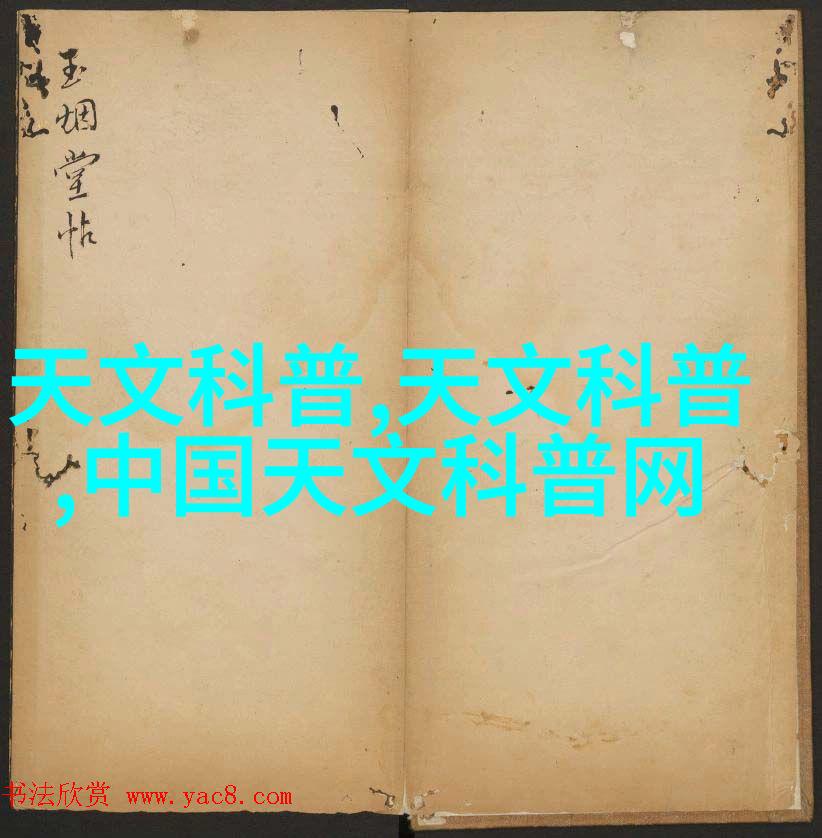 玉烟堂帖
天文科普,天文科普
,中国天文科普网
书法欣赏 www.yac8.com